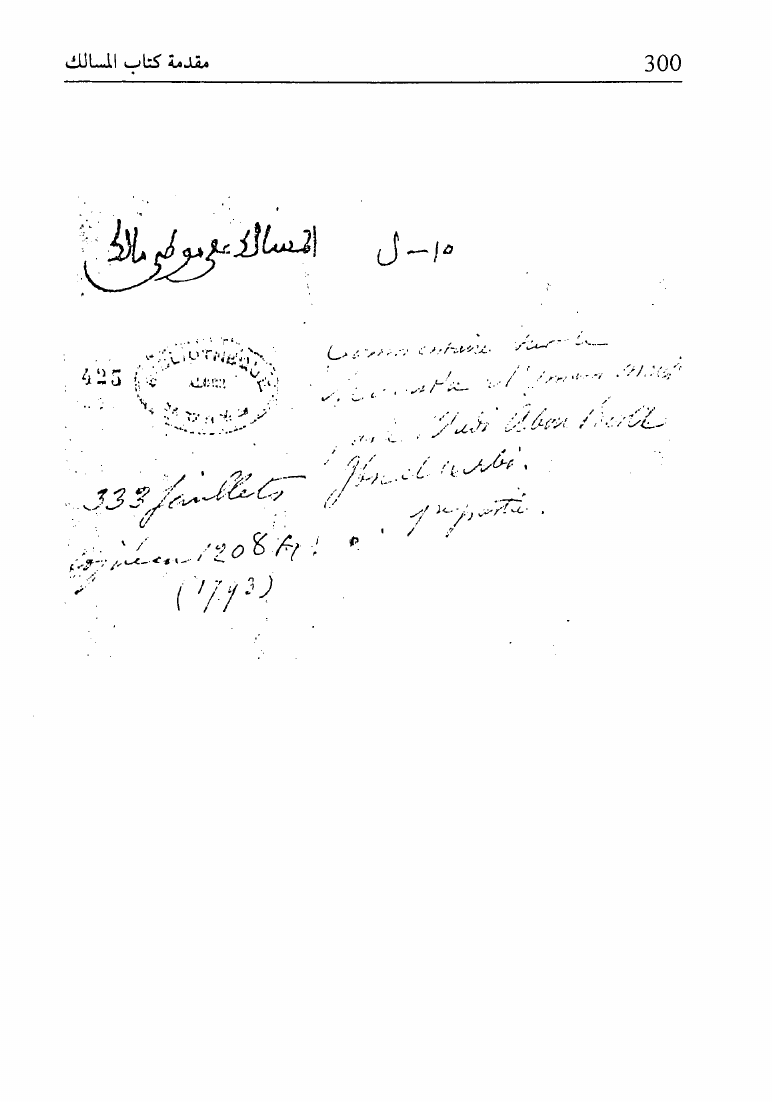 300 مقدمة كتاب المسالك
المسالك على موطى مالك
ل - 10
BIBLIOTHEQUE
ALGER
425
Commentaire sur le
Mouatta d'Imam Malek
par Sidi Abou Bekr
Ibn el Arbi.
1re partie.
333 feuillets
copié en 1208 h
(1793)